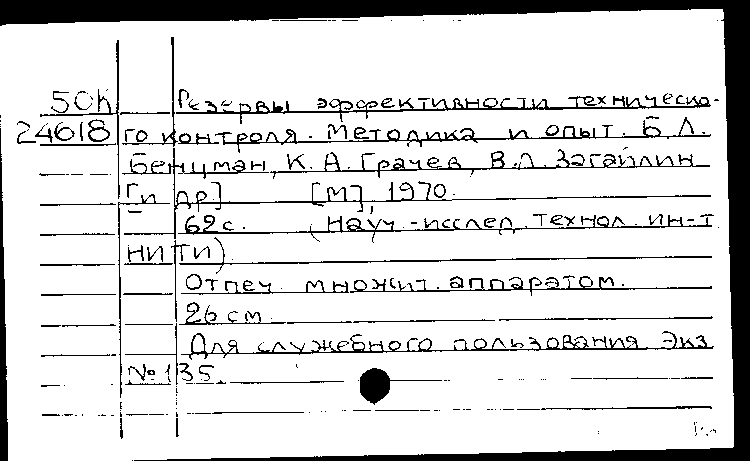 50К Резервы эффективности техническо-
24618 го контроля. Методика и опыт. Б.Л.
Бенцман, К. А. Грачев, В.Л. Загайлин
[и др.] [М], 1970.
62 с. (Науч.-исслед. технол. ин-т
НИТИ)
Отпеч. множит. аппаратом.
26 см.
Для служебного пользования Экз
№ 135.